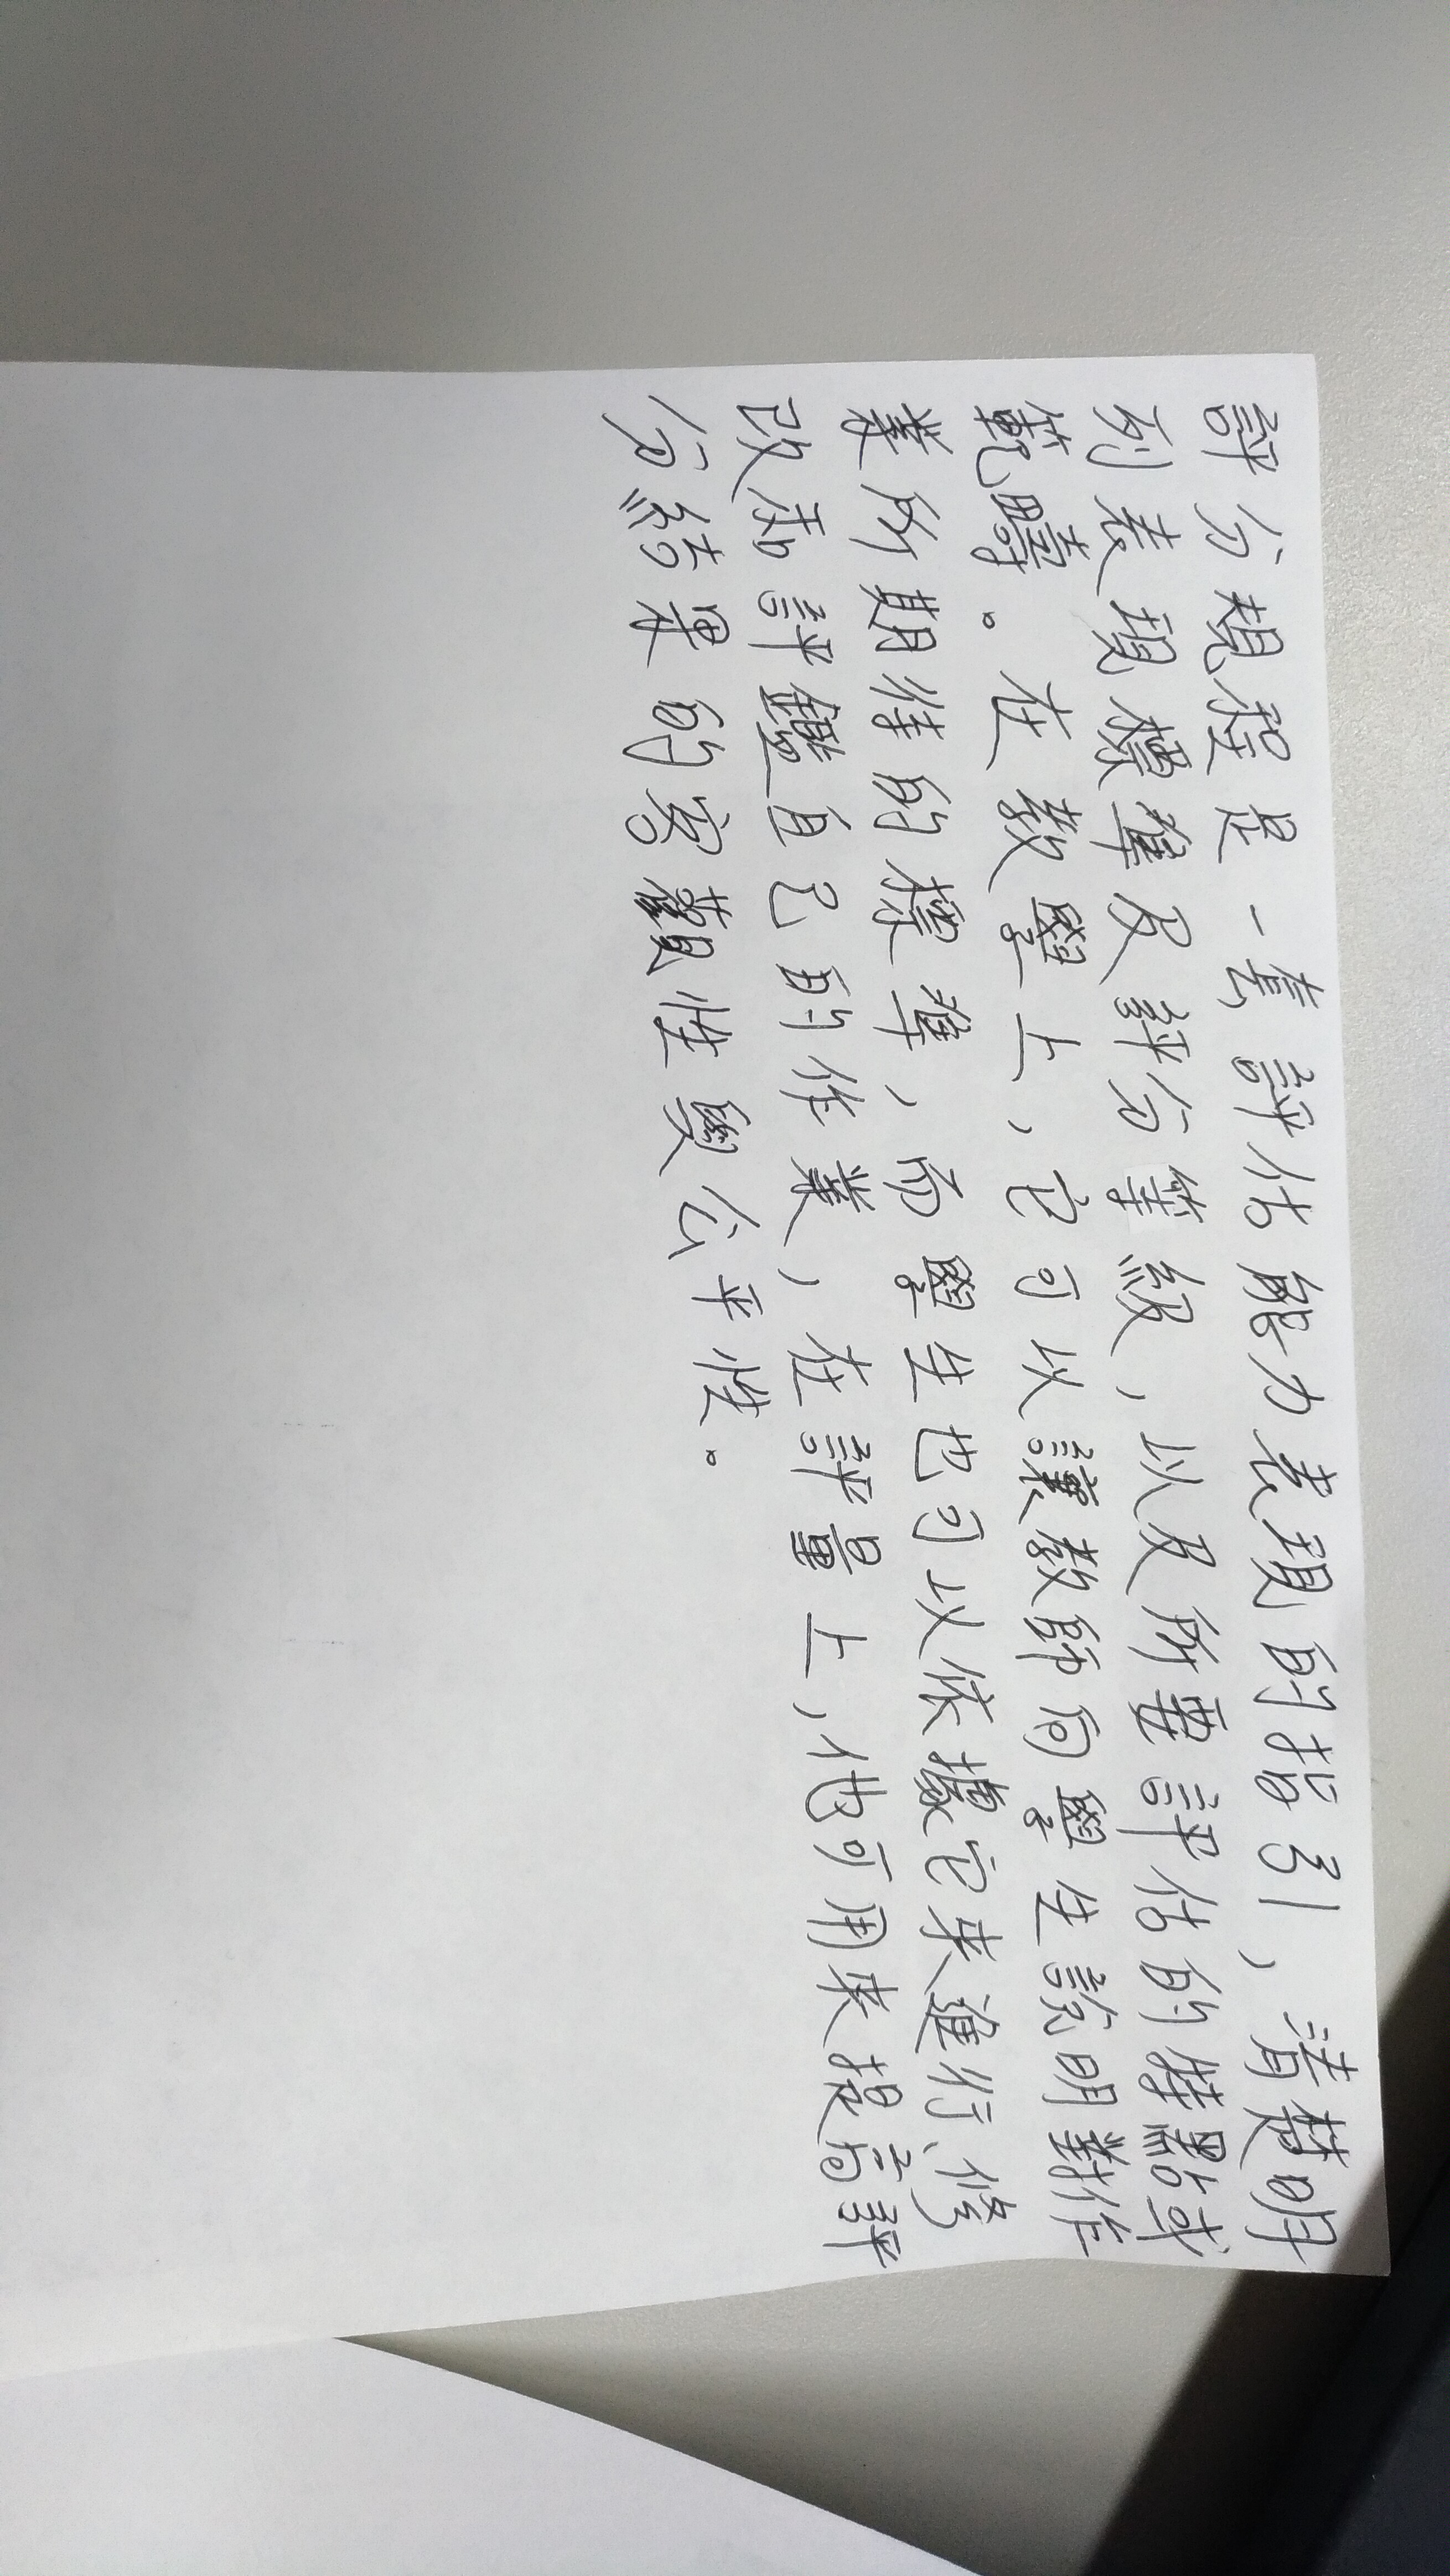 評分規程是一套評估能力表現的指引，清楚明
列表現標準及評分等級，以及所要評估的特點或
範疇。在教學上，它可以讓教師向學生說明對作
業所期待的標準，而學生也可以依據它來進行修
改和評鑑自己的作業，在評量上，他可用來提高評
分結果的客觀性與公平性。